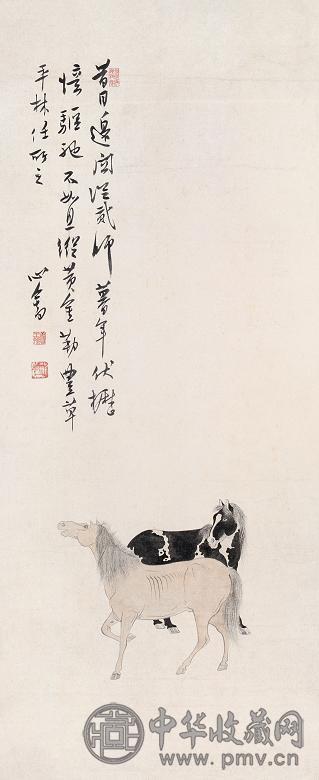 昔日邊關從貳師暮年伏櫪
憶驅馳不如且縱黃金勒豐草
平林任所之
心畬
中华收藏网
www.pmv.cn